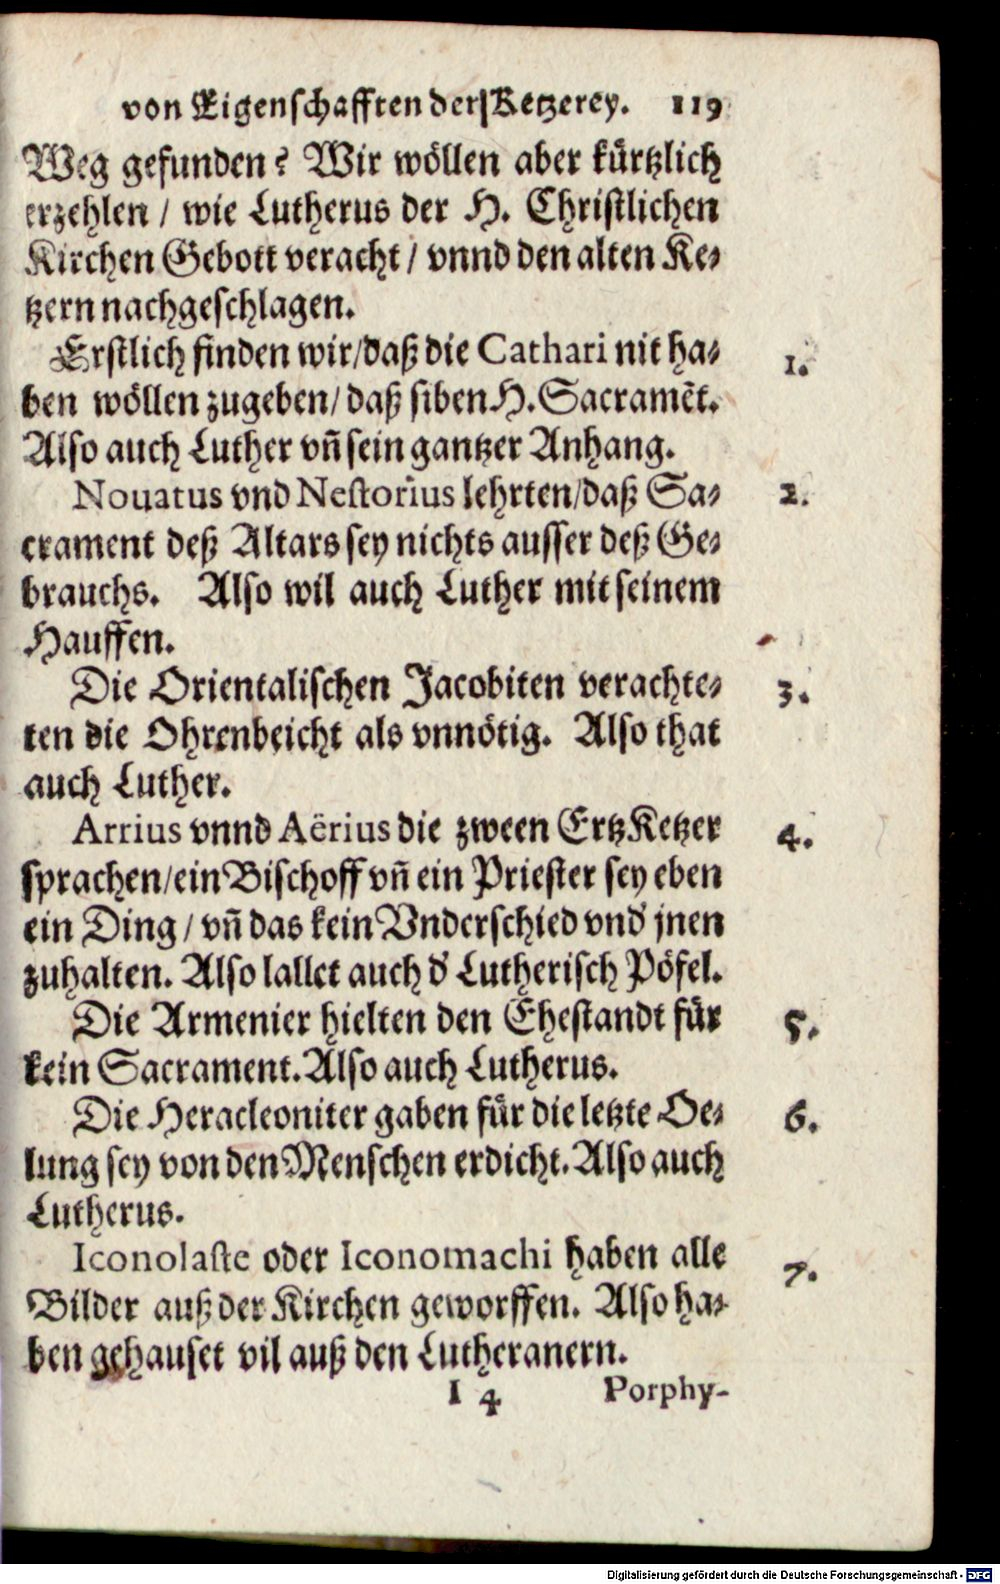 von Eigenschafften der Ketzerey. 119
Weg gefunden? Wir wöllen aber kürtzlich
erzehlen / wie Lutherus der H. Christlichen
Kirchen Gebott veracht / vnnd den alten Ke-
tzern nachgeschlagen.
Erstlich finden wir / daß die Cathari nit ha- 1.
ben wöllen zugeben / daß siben H. Sacramēt.
Also auch Luther vñ sein gantzer Anhang.
Nouatus vnd Nestorius lehrten / daß Sa- 2.
crament deß Altars sey nichts ausser deß Ge-
brauchs. Also wil auch Luther mit seinem
Hauffen.
Die Orientalischen Jacobiten verachte- 3.
ten die Ohrenbeicht als vnnötig. Also that
auch Luther.
Arrius vnnd Aërius die zween ErtzKetzer 4.
sprachen / ein Bischoff vñ ein Priester sey eben
ein Ding / vñ das kein Vnderschied vnd' jnen
zuhalten. Also lallet auch d' Lutherisch Pöfel.
Die Armenier hielten den Ehestandt für 5.
kein Sacrament. Also auch Lutherus.
Die Heracleoniter gaben für die letzte Oe- 6.
lung sey von den Menschen erdicht. Also auch
Lutherus.
Iconolaste oder Iconomachi haben alle 7.
Bilder auß der Kirchen geworffen. Also ha-
ben gehauset vil auß den Lutheranern.
I 4 Porphy-
Digitalisierung gefördert durch die Deutsche Forschungsgemeinschaft - DFG